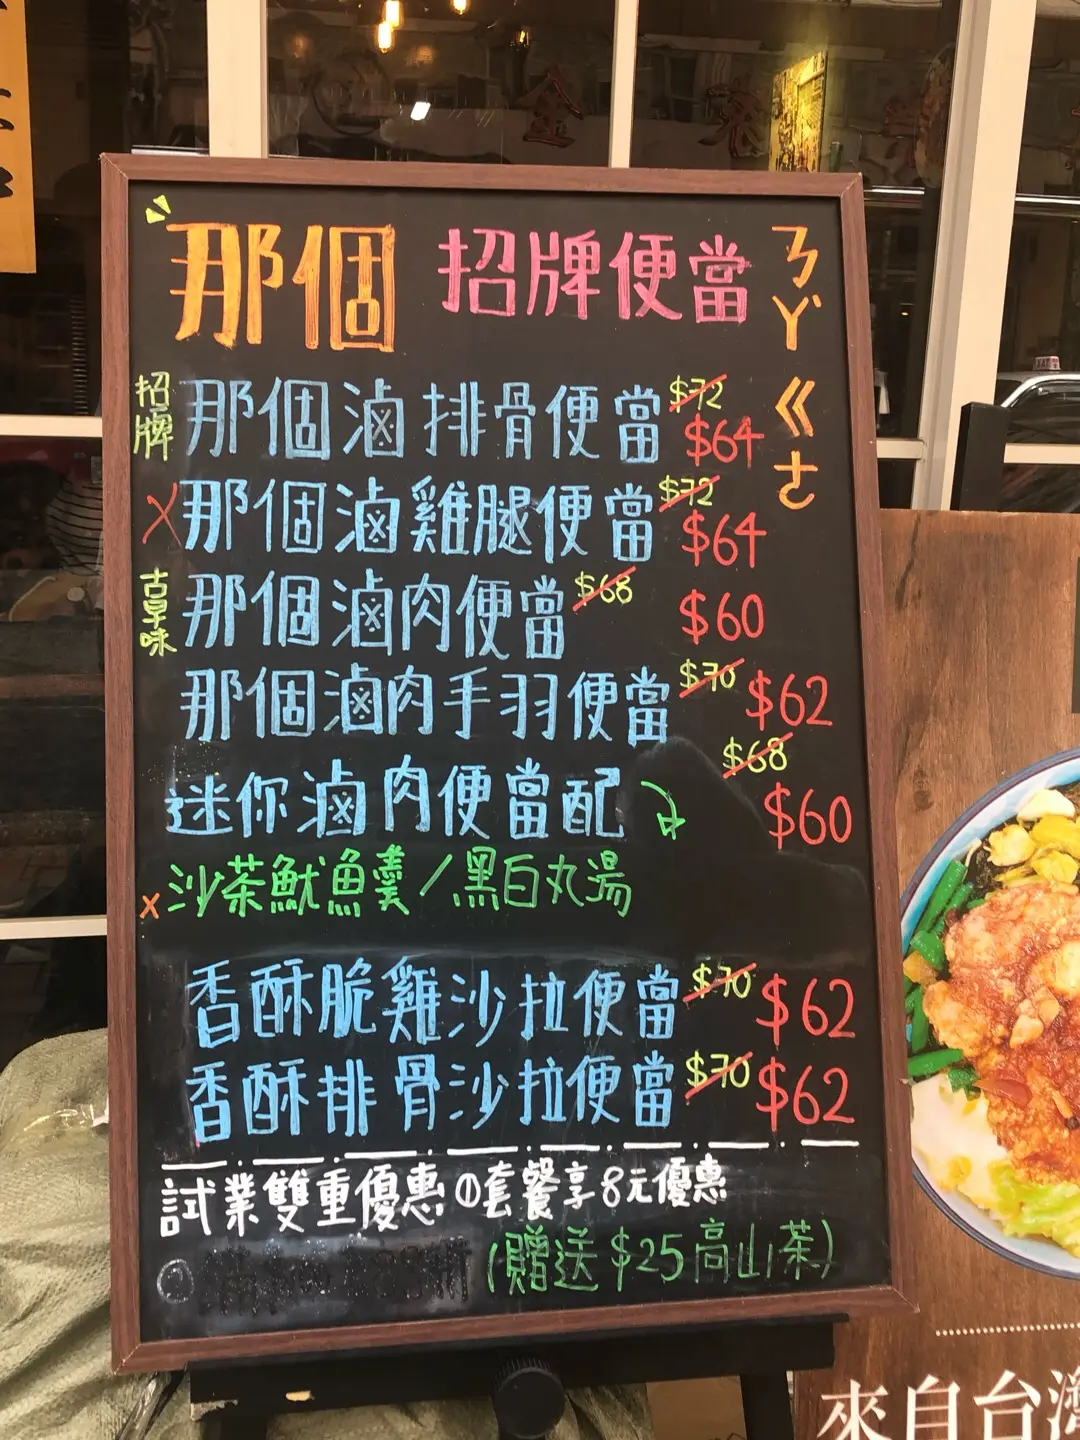 那個 招牌便當 ㄋㄚˋ ㄍㄜˋ
招牌 那個滷排骨便當 $72 $64
X 那個滷雞腿便當 $72 $64
古早味 那個滷肉便當 $68 $60
那個滷肉手羽便當 $70 $62
迷你滷肉便當配 $68 $60
x 沙茶魷魚羹/黑白丸湯
香酥脆雞沙拉便當 $70 $62
香酥排骨沙拉便當 $70 $62
試業雙重優惠 ①套餐享8元優惠
(贈送 $25高山茶)
來自台灣